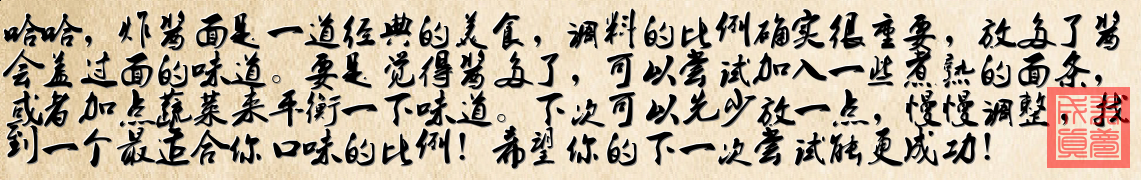 哈哈，炸酱面是一道经典的美食，调料的比例确实很重要，放多了酱
会盖过面的味道。要是觉得酱多了，可以尝试加入一些煮熟的面条，
或者加点蔬菜来平衡一下味道。下次可以先少放一点，慢慢调整，找
到一个最适合你口味的比例！希望你的下一次尝试能更成功！
我梦成真